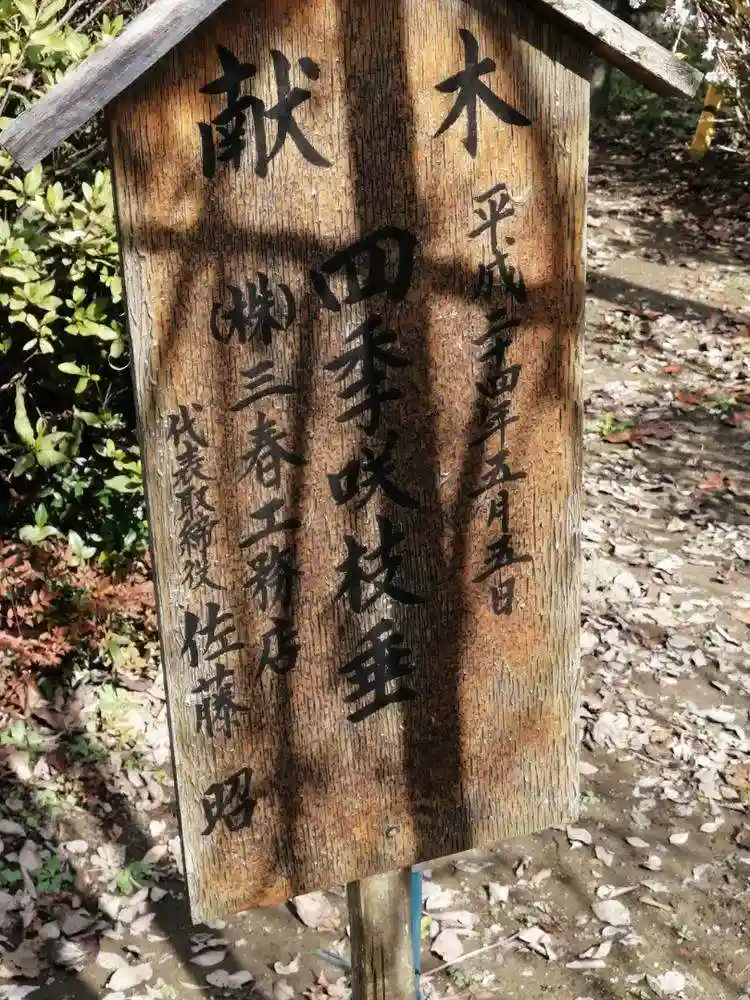 献木
平成二十四年五月五日
四季咲枝垂
(株)三春工務店
代表取締役 佐藤 昭